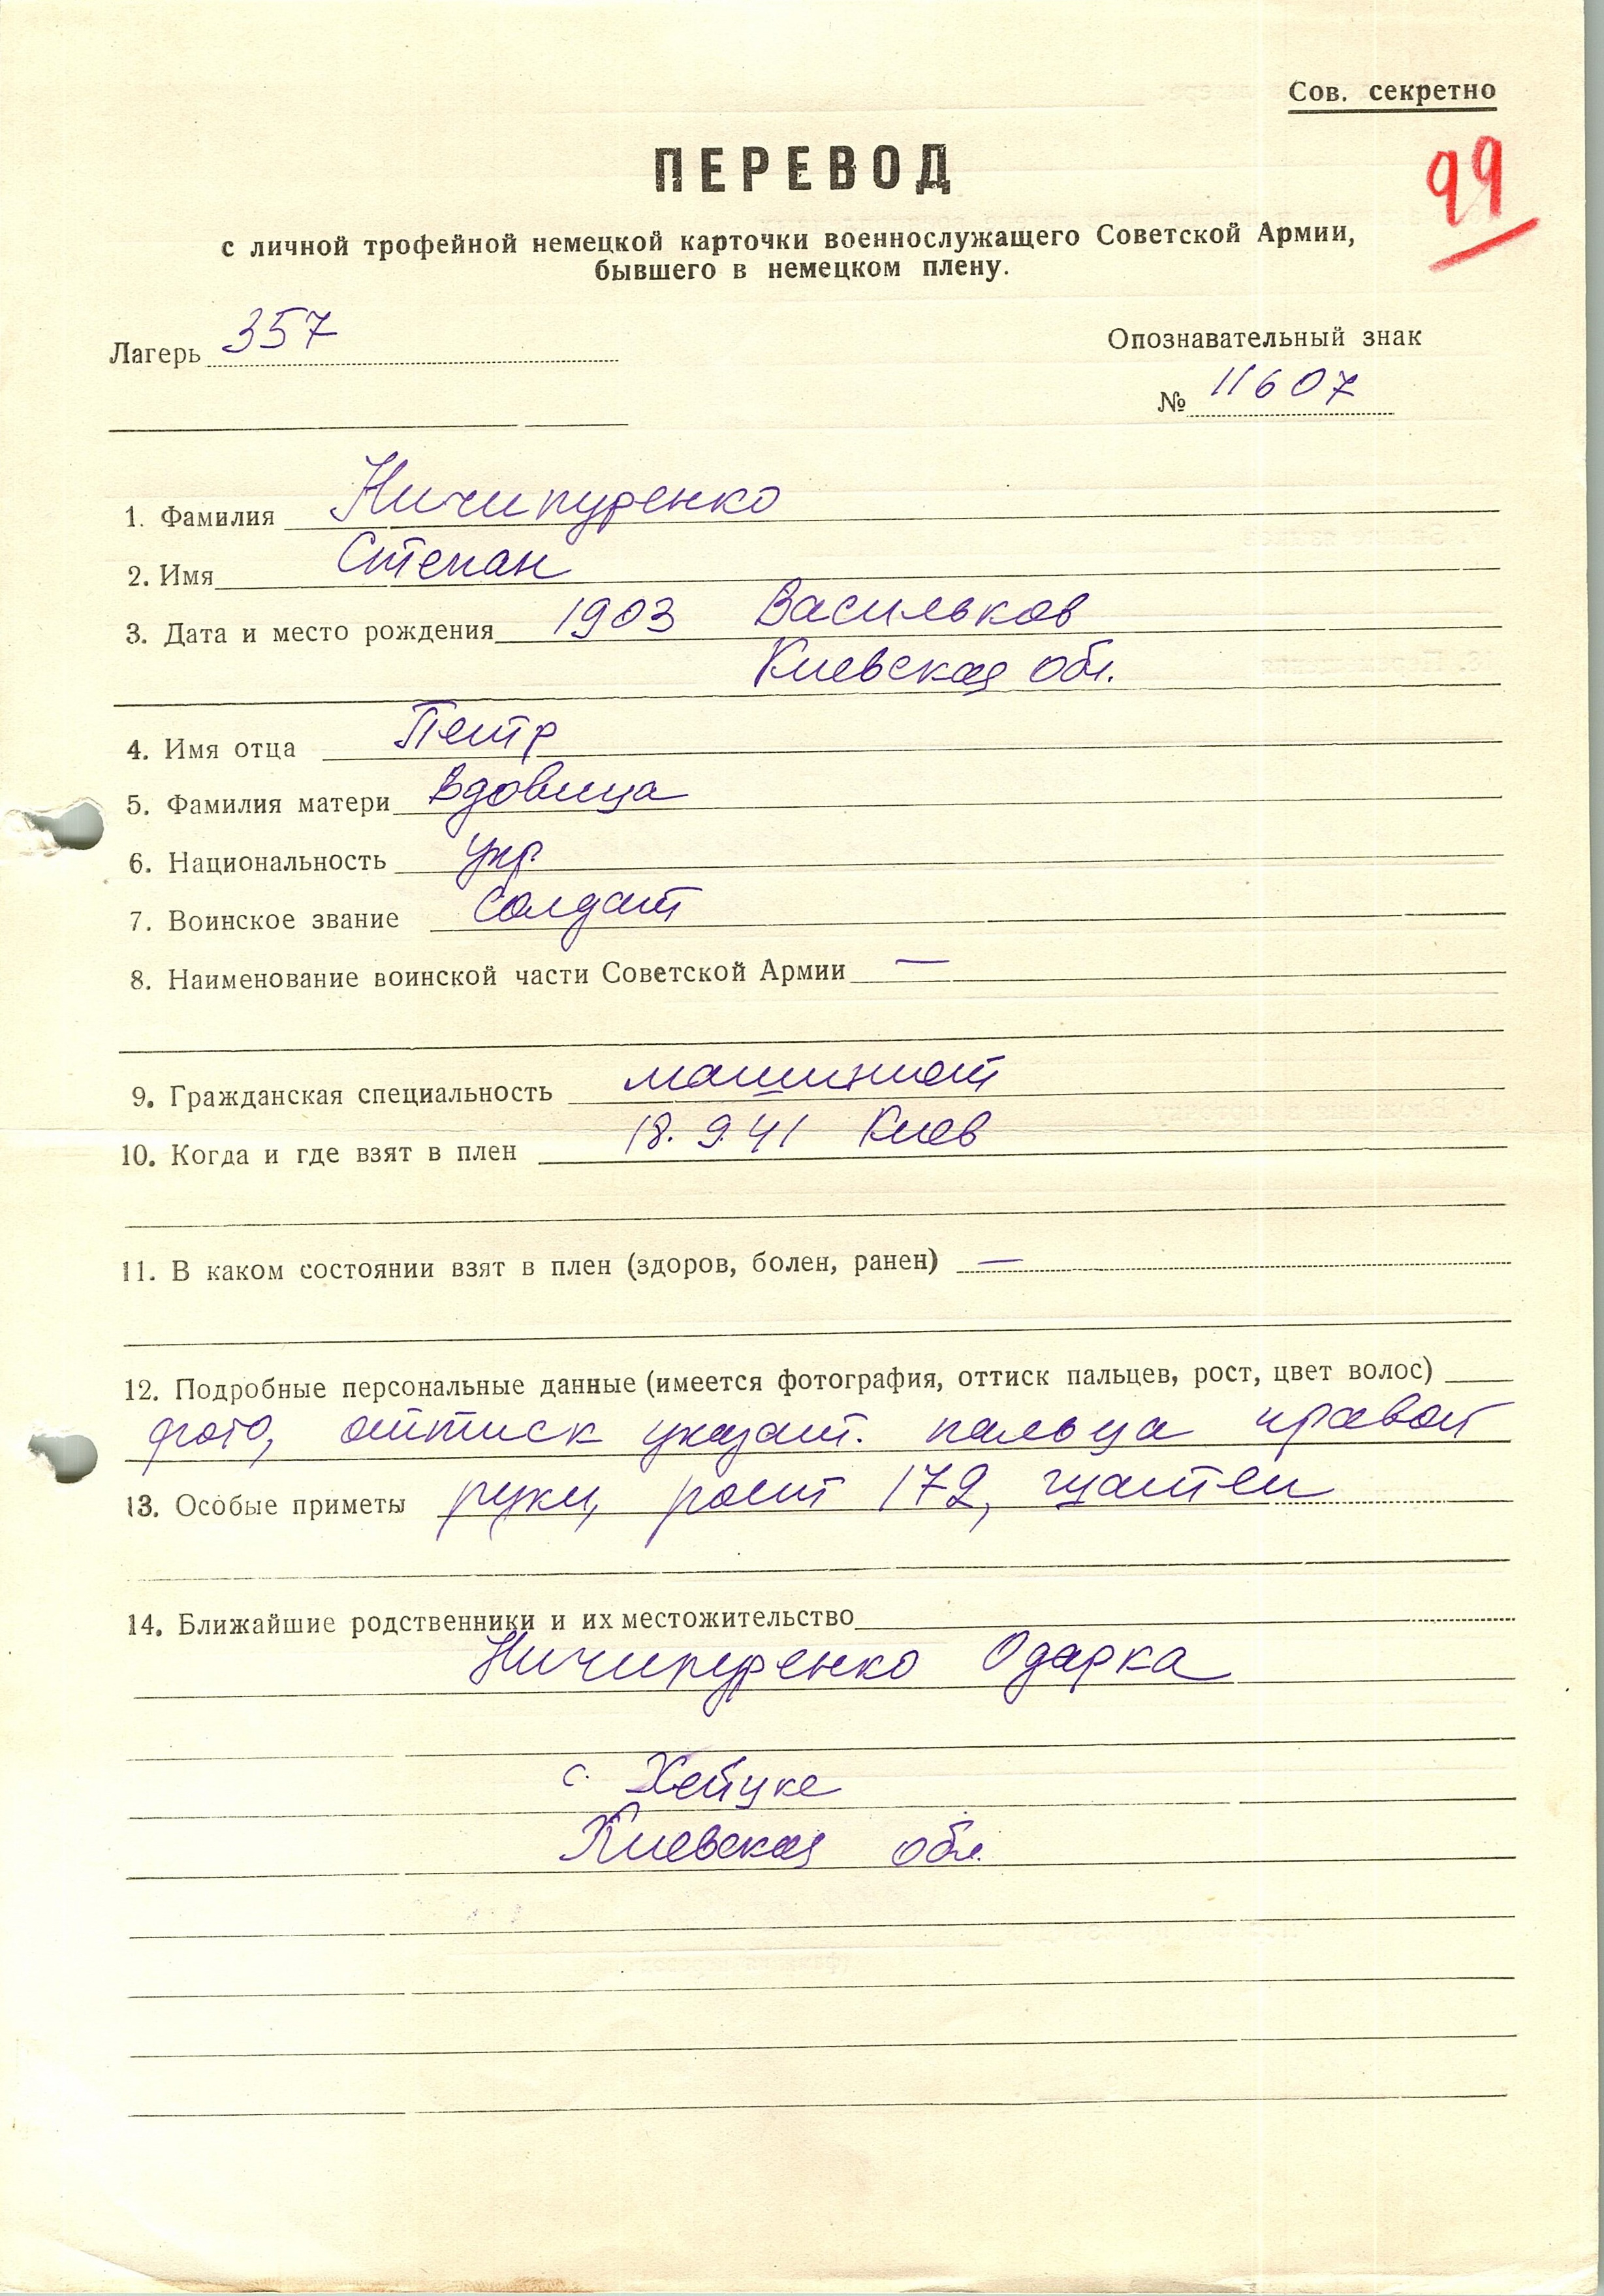 Сов. секретно
99
ПЕРЕВОД
с личной трофейной немецкой карточки военнослужащего Советской Армии,
бывшего в немецком плену.
Лагерь 357
Опознавательный знак
№ 11607
1. Фамилия Ничипуренко
2. Имя Степан
3. Дата и место рождения 1903 Васильков
Киевская обл.
4. Имя отца Петр
5. Фамилия матери Вдовица
6. Национальность укр.
7. Воинское звание солдат
8. Наименование воинской части Советской Армии —
9. Гражданская специальность машинист
10. Когда и где взят в плен 18. 9 41 Киев
11. В каком состоянии взят в плен (здоров, болен, ранен) —
12. Подробные персональные данные (имеется фотография, оттиск пальцев, рост, цвет волос)
фото, оттиск указат. пальца правой
13. Особые приметы руки, рост 172, шатен
14. Ближайшие родственники и их местожительство
Ничипуренко Одарка
с. Хейцке
Киевская обл.